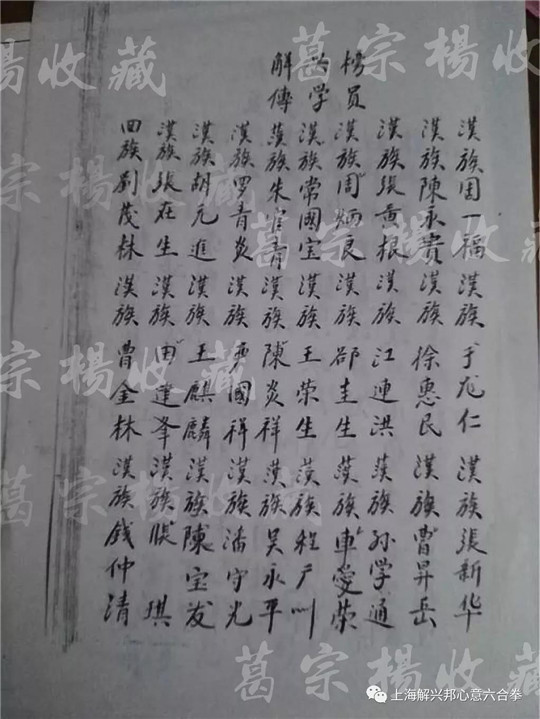 解兴榜
傳学员
漢族周一福 漢族于龙仁 漢族張新华
漢族陳永貴 漢族徐惠民 漢族曹昇岳
漢族張黄根 漢族江連洪 漢族孙学通
漢族周炳良 漢族邵圭生 漢族車愛荣
漢族常國宝 漢族王荣生 漢族程广川
漢族朱青 漢族陳炎祥 漢族吴永平
漢族罗青炎 漢族國祥 漢族潘守光
漢族胡元進 漢族王麒麟 漢族陳宝发
漢族張在生 漢族田建峯 漢族張琪
回族劉茂林 漢族曹金林 漢族錢仲清
葛宗楊收藏
葛宗楊收藏
葛宗楊收藏
葛宗楊收藏
葛宗楊收藏
上海解兴邦心意六合拳